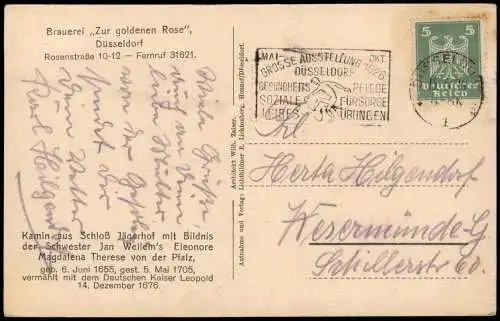 Brauerei „Zur goldenen Rose",
Düsseldorf
Rosenstraße 10-12 — Fernruf 31621.
Viele Grüße
auch an Deine
liebe Mutter
von der Gesolei
sendet Dir
Dein Vetter
Karl Hilgendorf
Kamin aus Schloß Jägerhof mit Bildnis
der Schwester Jan Wellem's Eleonore
Magdalena Therese von der Pfalz,
geb. 6. Juni 1655, gest. 5. Mai 1705,
vermählt mit dem Deutschen Kaiser Leopold
14. Dezember 1676.
Architekt Wilh. Zaiser.
Aufnahme und Verlag: Lichtbildner E. Lichtenberg, Hansa/Düsseldorf.
MAI OKT.
GROSSE AUSSTELLUNG 1926
DÜSSELDORF
GESUNDHEITS PFLEGE
SOZIALE FÜRSORGE
LEIBES ÜBUNGEN
5 5
Deutsches
Reich
DÜSSELDORF
1
Frl.
Herta Hilgendorf
Wesermünde-G.
Schillerstr 60.